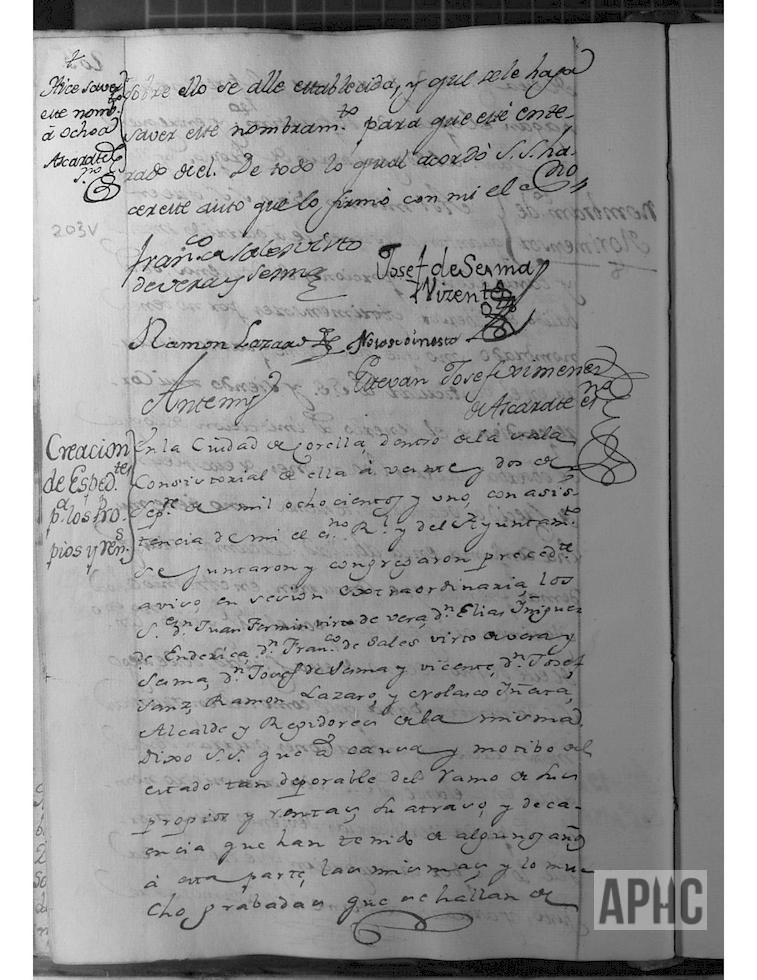 Hice saver
este nomb.to
á Ochoa
Ascarate
s.no
203V
sobre ello se alle establecida, y que se le haga
saver este nombram.to para que esté ente-
rado de el. De todo lo qual acordó S.S. ha-
cer este auto que lo firmó con mi el es.no
Fran.co de Sales Virto
de vera y Sesma
Josef de Sesma
y Vizente
Ramon Lazaro
Antemy
Estevan Josef Ximenez
de Ascarate es.no
Creacion
de Exped.tes
p.a los Pro-
pios y ren.s
En la Ciudad de Corella, dentro de la Sala
Consistorial de ella á veinte y dos de
Sep.re de mil ochocientos y uno, con asis-
tencia de mi el es.no R.l y del Ayuntam.to
se juntaron y congregaron precedte
aviso, en sesion extraordinaria, los
S.res d.n Juan Fermin virto de vera, d.n Elias Yñiguez
de Enderica, d.n Fran.co de Sales virto de vera y
Sesma, d.n Josef de Sesma y vicente, d.n Josef
Sanz, Ramon Lazaro, y Nolasco Yñara,
Alcalde y Regidores de la misma.
Dixo S.S. que á causa y motibo del
estado tan deporable del ramo de sus
propios y rentas, su atraso, y deca-
encia que han tenido de algunos años
á esta parte, las mismas, y lo mu-
cho, grabadas que se hallan de
APHC